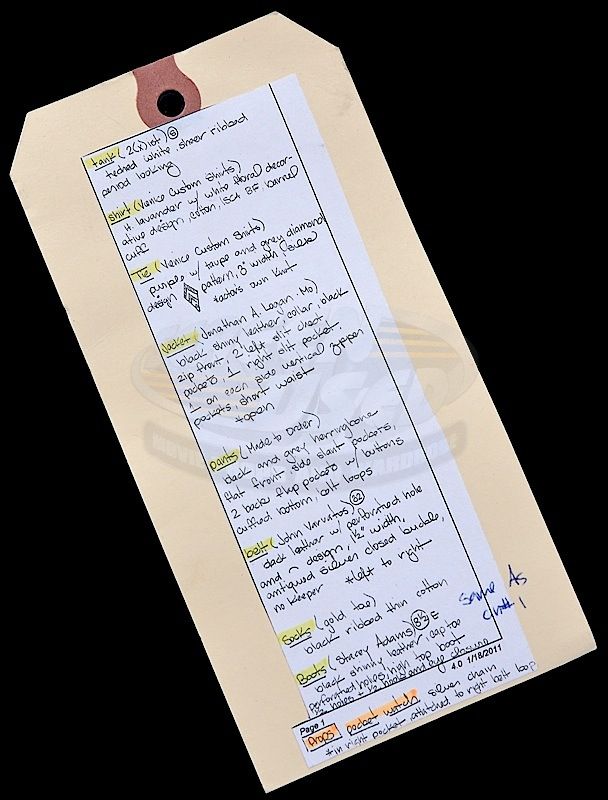 tank (2(x)ist) Ⓢ
teched white, sheer ribbed
period looking
shirt (Venice Custom Shirts)
lt. lavander w/ white floral decor-
ative design, cotton, BF, barrel
cuff
Tie (Venice Custom Shirts)
purple w/ taupe and grey diamond
design pattern, 3" width,
*actors own knot
Jacket (Jonathan A. Logan
black shiny leather, collar, black
zip front, 2 left slit chest
pockets, 1 right slit pocket,
1 on each side vertical zipper
pockets, short waist
*open
pants (Made to Order)
black and grey herringbone
flat front, side slant pockets,
2 back flap pockets w/ buttons
cuffed bottom, belt loops
belt (John Varvatos) 32
black leather w/ perforated hole
and design, 1½" width,
antiqued silver closed buckle,
no keeper *left to right
Socks (gold toe)
black ribbed thin cotton
Same As
Boots (Stacey Adams) 8½ E
black shiny leather, cap toe
perforated holes, high top boot
holes + ½ hooks and eye closure
4.0 1/18/2011
Page 1
Props pocket watch silver chain
*in right pocket attatched to right belt loop
USED